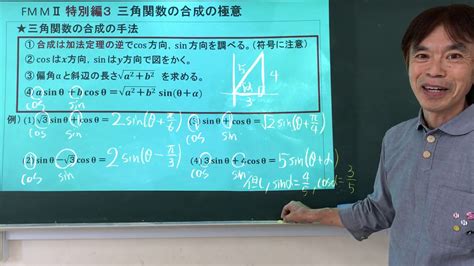 FMMⅡ 特別編3 三角関数の合成の極意
★三角関数の合成の手法
①合成は加法定理の逆でcos方向, sin方向を調べる。(符号に注意)
②cosはx方向, sinはy方向で図をかく。
③偏角αと斜辺の長さ√a²+b² を求める。
④a sinθ+b cosθ=√a²+b² sin(θ+α)
cos sin
5 4
α
3
例) (1)√3 sinθ+cosθ=2sin(θ+π/6) (3)sinθ+cosθ=√2 sin(θ+π/4)
cos sin cos sin
(2)sinθ-√3 cosθ 2sin(θ-π/3) (4)3 sinθ+4cosθ=5sin(θ+α)
cos sin cos sin
但し, sinα=4/5, cosα=3/5